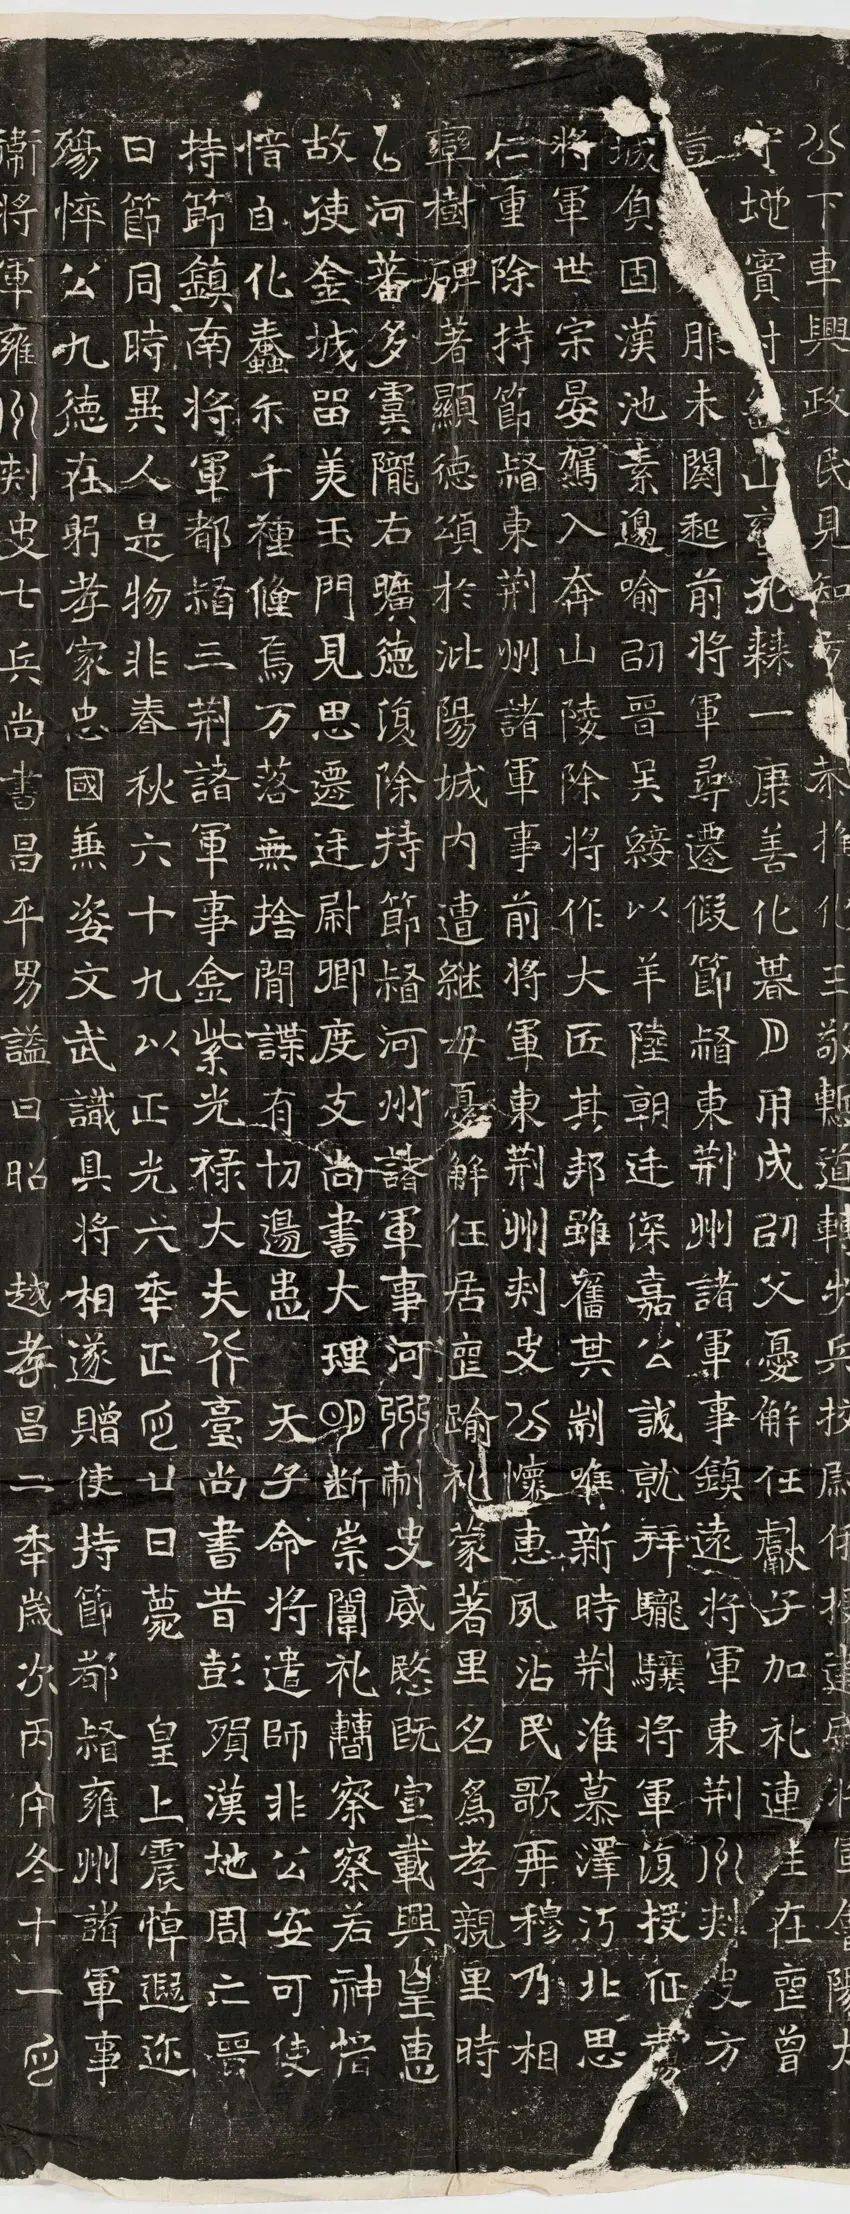 公下車興政民見知方恭推化三敬慙道轉步兵挍尉伊授建威將軍魯陽太
守地實山孔棘一康善化朞月用成卲父憂解任獻子加礼連在亶曾
服未闋起前將軍尋遷假節督東荆州諸軍事鎮遠將軍東荆州刾史方
城負固漢池素邊喻卲晉吴綏以羊陸朝廷深嘉公誠就拜驪驤將軍復授征虜
將軍世宗晏駕入奔山陵除將作大匠其邦雖舊其制唯新時荆淮慕澤沔北思
仁重除持節督東荆州諸軍事前將軍東荆州刾史公懷惠夙沾民歌再穆乃相
率樹碑著顯德頌於沘陽城内遭継母憂解任居亶踰礼蒙著里名爲孝親里時
以河蕃多虞隴右曠德復除持節督河州諸軍事河州刺史威愍既宣載興皇惠
故使金城留美玉門見思遷廷尉卿度支尚書大理明断崇闡礼轄察察若神愔
愔自化蠢尒千種僮焉万落無捨閒諜有切邊患　天子命將遣師非公安可使
持節鎮南將軍都督三荆諸軍事金紫光禄大夫行臺尚書昔彭殞漢地周亡晉
日節同時異人是物非春秋六十九以正光六年正月廿日薨　皇上震悼遐迩
殤悴公九德在躬孝家忠國兼姿文武識具將相遂贈使持節都督雍州諸軍事
衛將軍雍州刾史七兵尚書昌平男謚曰昭　越孝昌二年歲次丙午冬十一月